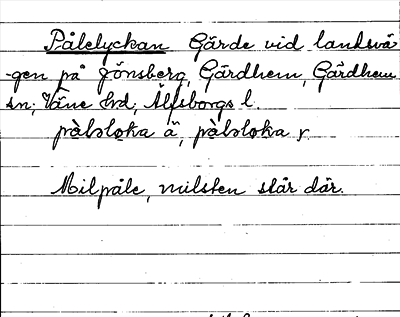 Pålelyckan Gärde vid landsvä-
gen på Jönsberg, Gärdhem, Gärdhem
sn; Väne hd, Älfsborgs l.
pàləlɔka ä, pàləlɔka y
Milpåle, milsten står där.